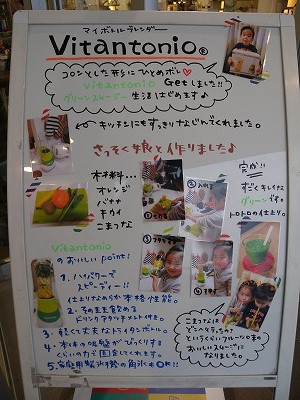 マイボトルブレンダー
Vitantonio®
コロンとした形にひとめボレ♡
Vitantonio Getしました!!
グリーンスムージー生活はじめます♪
キッチンにもすっきりなじんでくれました。
さっそく娘と作りました♪
材料...
オレンジ
バナナ
キウイ
こまつな
完成!!
すごくキレイな
グリーンです。
トロトロの仕上り。
Vitantonio
のおいしい point!
1. ハイパワーで
スピーディー!!
仕上りなめらか本格性能。
2. そのまま飲める
ドリンクアタッチメント付き。
3. 軽くて丈夫なトライタンボトル。
4. 本体の吸盤がびっくりする
くらいの力で固定してくれます。
5. 家庭用製氷機の角氷もOK!!
こまつなは
どこへ行ったの?
というくらいフルーツ味の
おいしいスムージーに
なりました。